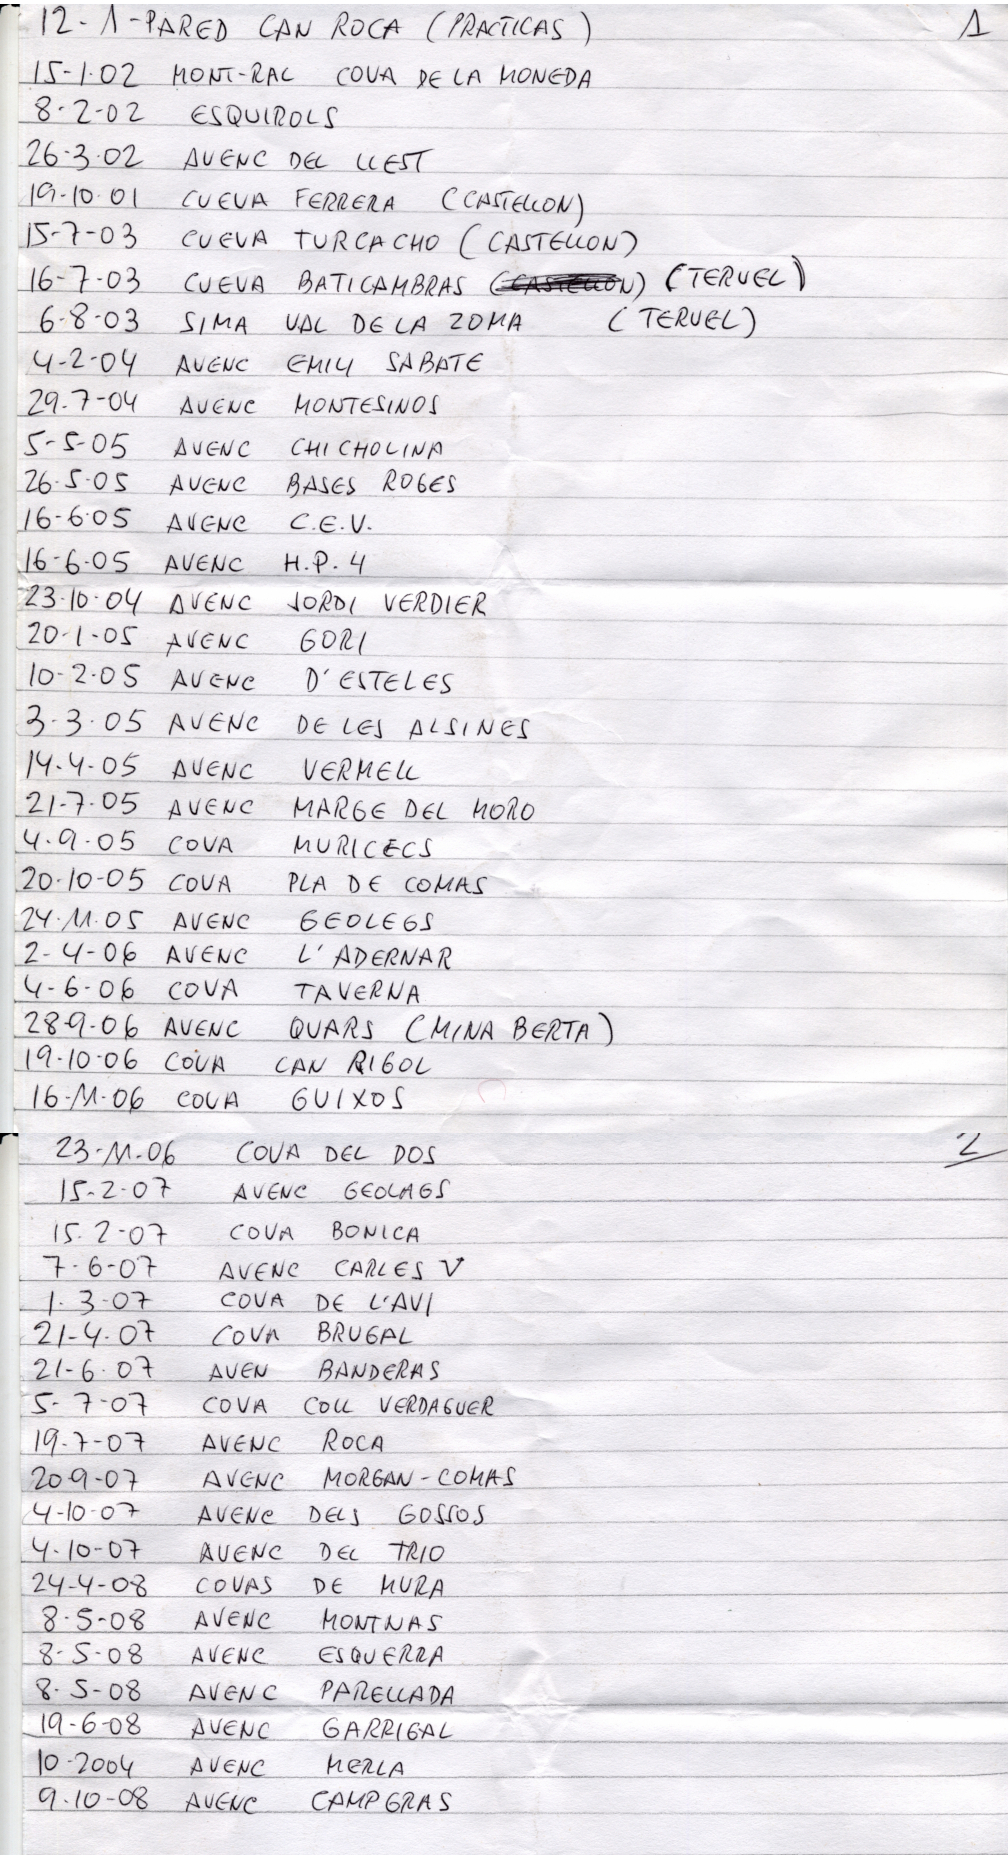 12-1-PARED CAN ROCA (PRACTICAS) 1
15-1-02 MONT-RAL COVA DE LA MONEDA
8-2-02 ESQUIROLS
26-3-02 AVENC DEL LLEST
19-10-01 CUEVA FERRERA (CASTELLON)
15-7-03 CUEVA TURCACHO (CASTELLON)
16-7-03 CUEVA BATICAMBRAS (CASTELLON) (TERUEL)
6-8-03 SIMA VAL DE LA ZOMA (TERUEL)
4-2-04 AVENC EMILI SABATE
29-7-04 AVENC MONTESINOS
5-5-05 AVENC CHICHOLINA
26-5-05 AVENC BASES ROGES
16-6-05 AVENC C.E.V.
16-6-05 AVENC H.P. 4
23-10-04 AVENC JORDI VERDIER
20-1-05 AVENC GORI
10-2-05 AVENC D'ESTELES
3-3-05 AVENC DE LES ALSINES
14-4-05 AVENC VERMELL
21-7-05 AVENC MARGE DEL MORO
4-9-05 COVA MURICECS
20-10-05 COVA PLA DE COMAS
24-11-05 AVENC GEOLEGS
2-4-06 AVENC L'ADERNAR
4-6-06 COVA TAVERNA
28-9-06 AVENC QUARS (MINA BERTA)
19-10-06 COVA CAN RIGOL
16-11-06 COVA GUIXOS
23-11-06 COVA DEL DOS 2
15-2-07 AVENC GEOLAGS
15-2-07 COVA BONICA
7-6-07 AVENC CARLES V
1-3-07 COVA DE L'AVI
21-4-07 COVA BRUGAL
21-6-07 AVEN BANDERAS
5-7-07 COVA COLL VERDAGUER
19-7-07 AVENC ROCA
20-9-07 AVENC MORGAN-COMAS
4-10-07 AVENC DELS GOSSOS
4-10-07 AVENC DEL TRIO
24-4-08 COVAS DE MURA
8-5-08 AVENC MONTNAS
8-5-08 AVENC ESQUERRA
8-5-08 AVENC PARELLADA
19-6-08 AVENC GARRIGAL
10-2004 AVENC MERLA
9-10-08 AVENC CAMPGRAS